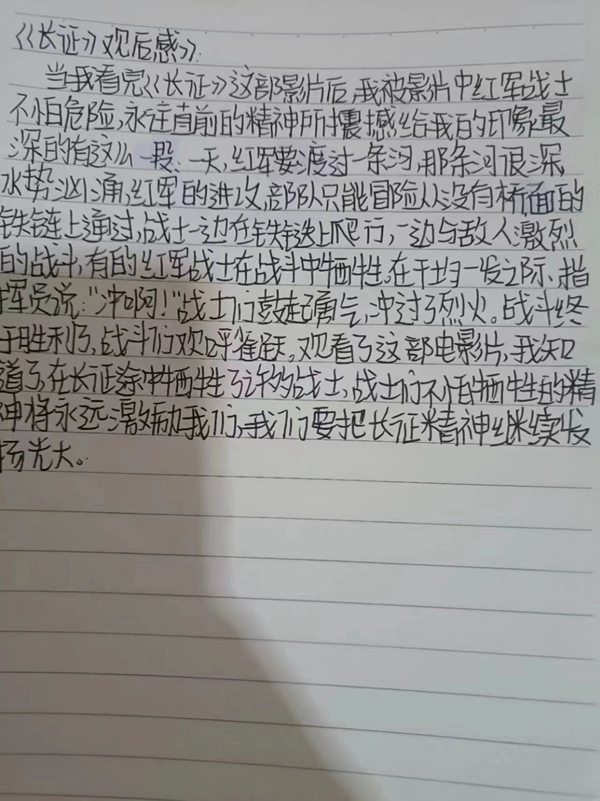 《长征》观后感》:
当我看完《长征》这部影片后,我被影片中红军战士
不怕危险,永往直前的精神所震撼给我的印象最
深的有这么一段:一天,红军要渡过一条河,那条河很深,
水势汹涌,红军的进攻,部队只能冒险从没有桥面的
铁链上通过,战士一边在铁链上爬行,一边与敌人激烈
的战斗,有的红军战士在战斗中牺牲。在千均一发之际、指
挥员说:“冲啊!”战士们鼓起勇气,冲过了烈火。战斗终
于胜利了,战斗们欢呼雀跃。观看了这部电影片,我知
道了,在长征途中牺牲了许多战士,战士们不怕牺牲的精
神将永远激励我们,我们要把长征精神继续发
扬光大。